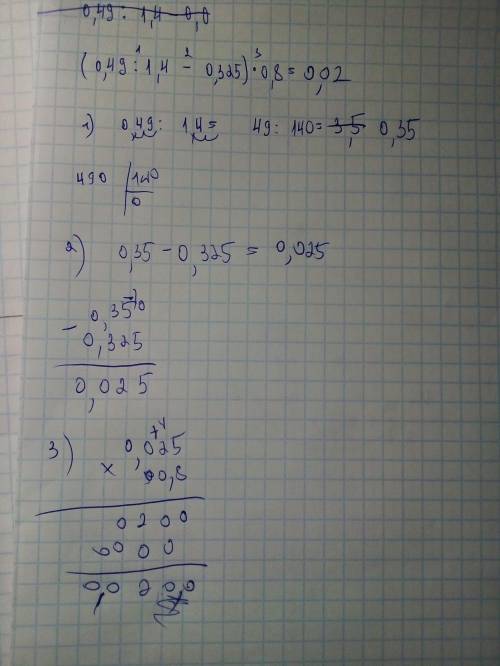 0,49 : 1,4 - 0,0
(0,49 : 1,4 - 0,325) · 0,8 = 0,02
1 2 3
1) 0,49 : 1,4 = 49 : 140 = 3,5 0,35
490 | 140
0
2) 0,35 - 0,325 = 0,025
- 0,350
0,325
0,025
3) 0,025
x 00,8
0200
0000
0,0200